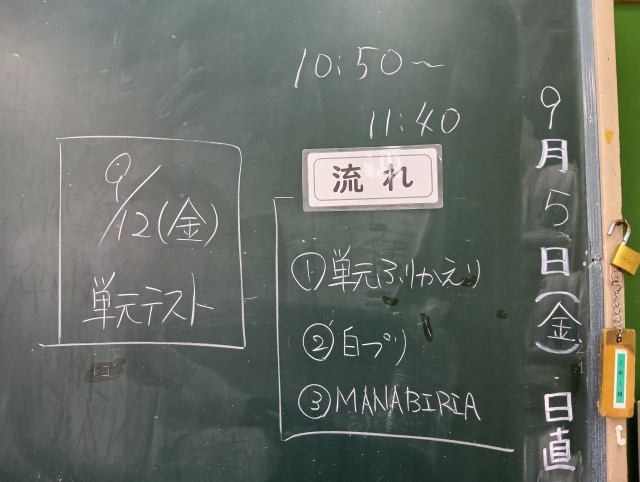 10:50〜
11:40
9月5日(金) 日直
流れ
①単元ふりかえり
②白プリ
③MANABIRIA
9/12(金)
単元テスト